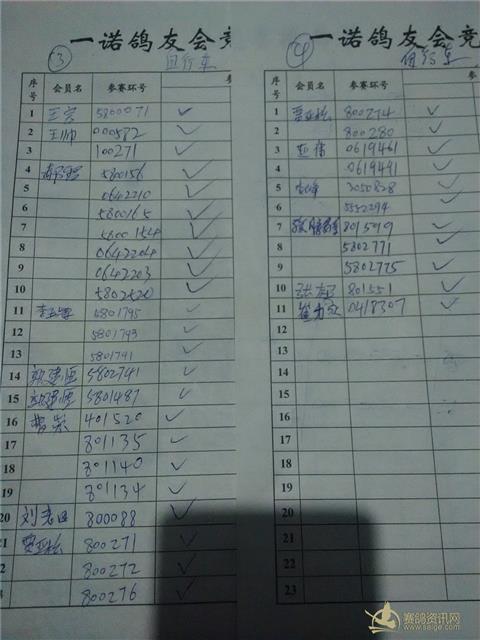 一诺鸽友会竞
③
自行车
序号 会员名 参赛环号 参
1 王宾 5800071 ✓
2 王帅 000582 ✓
3 100271 ✓
4 5800156 ✓
5 0642210 ✓
6 5800165 ✓
7 5800154 ✓
8 0642204 ✓
9 0642203 ✓
10 5802520 ✓
11 5801795 ✓
12 5801793 ✓
13 5801791 ✓
14 郭建恒 5802741 ✓
15 5801487 ✓
16 曹岩 401520 ✓
17 801135 ✓
18 801140 ✓
19 801134 ✓
20 刘志国 800088 ✓
21 贾亚松 800271 ✓
2 800272 ✓
800276 ✓
一诺鸽友会竞
④
自行车
序号 会员名 参赛环号
1 贾亚松 800274 ✓
2 800280 ✓
3 亚伟 0619461 ✓
4 0619491 ✓
5 3050828 ✓
6 5552294 ✓
7 8015019 ✓
8 5802771 ✓
9 5802775 ✓
10 801551 ✓
11 0418307 ✓
12
13
14
15
16
17
18
19
20
21
22
23
赛鸽资讯网
www.saige.com